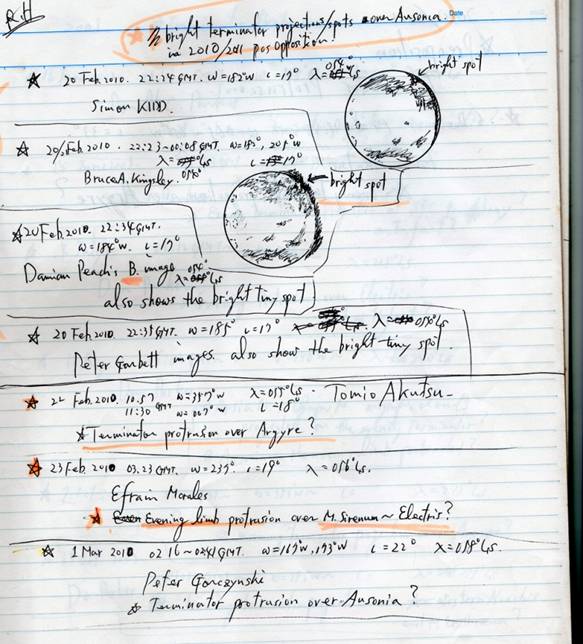 R.H
Date
bright terminator projections/spots over Ausonia
in 2010/2011 pos opposition!
☆ 20 Feb 2010. 22:24 GMT. ω=182°W ι=17° λ=054°Ls
bright spot
Simon KIDD.
☆ 20/Feb 2010. 22:23~00:08 GMT. ω=182°, 205°W
λ= 054° Ls ι= 17°
Bruce A. Kingsley.
bright spot
☆ 20 Feb 2010. 22:34 GMT.
ω=184°W. ι=17°
Damian Peach's B. image λ=054° Ls
also shows the bright tiny spot
☆ 20 Feb 2010. 22:38 GMT. ω=185°W ι=17° λ= 054° Ls
Peter Gorbett images. also show the bright tiny spot.
☆ 22 Feb. 2010. 10:57 ω=357°W λ=055° Ls. Tomio Akutsu
11:30 GMT ω=007°W ι=18°
☆ Terminator protrusion over Argyre?
☆ 23 Feb. 2010 03.23 GMT. ω=237° ι=19° λ=056° Ls.
Efrain Morales
☆ Evening limb protrusion over M. Sirenum ~ Electris?
☆ 1 Mar 2010 02 16 ~ 02:41 GMT. ω=167°W, 173°W ι=22° λ=058° Ls.
Peter Gorczynshi
☆ Terminator protrusion over Ausonia?